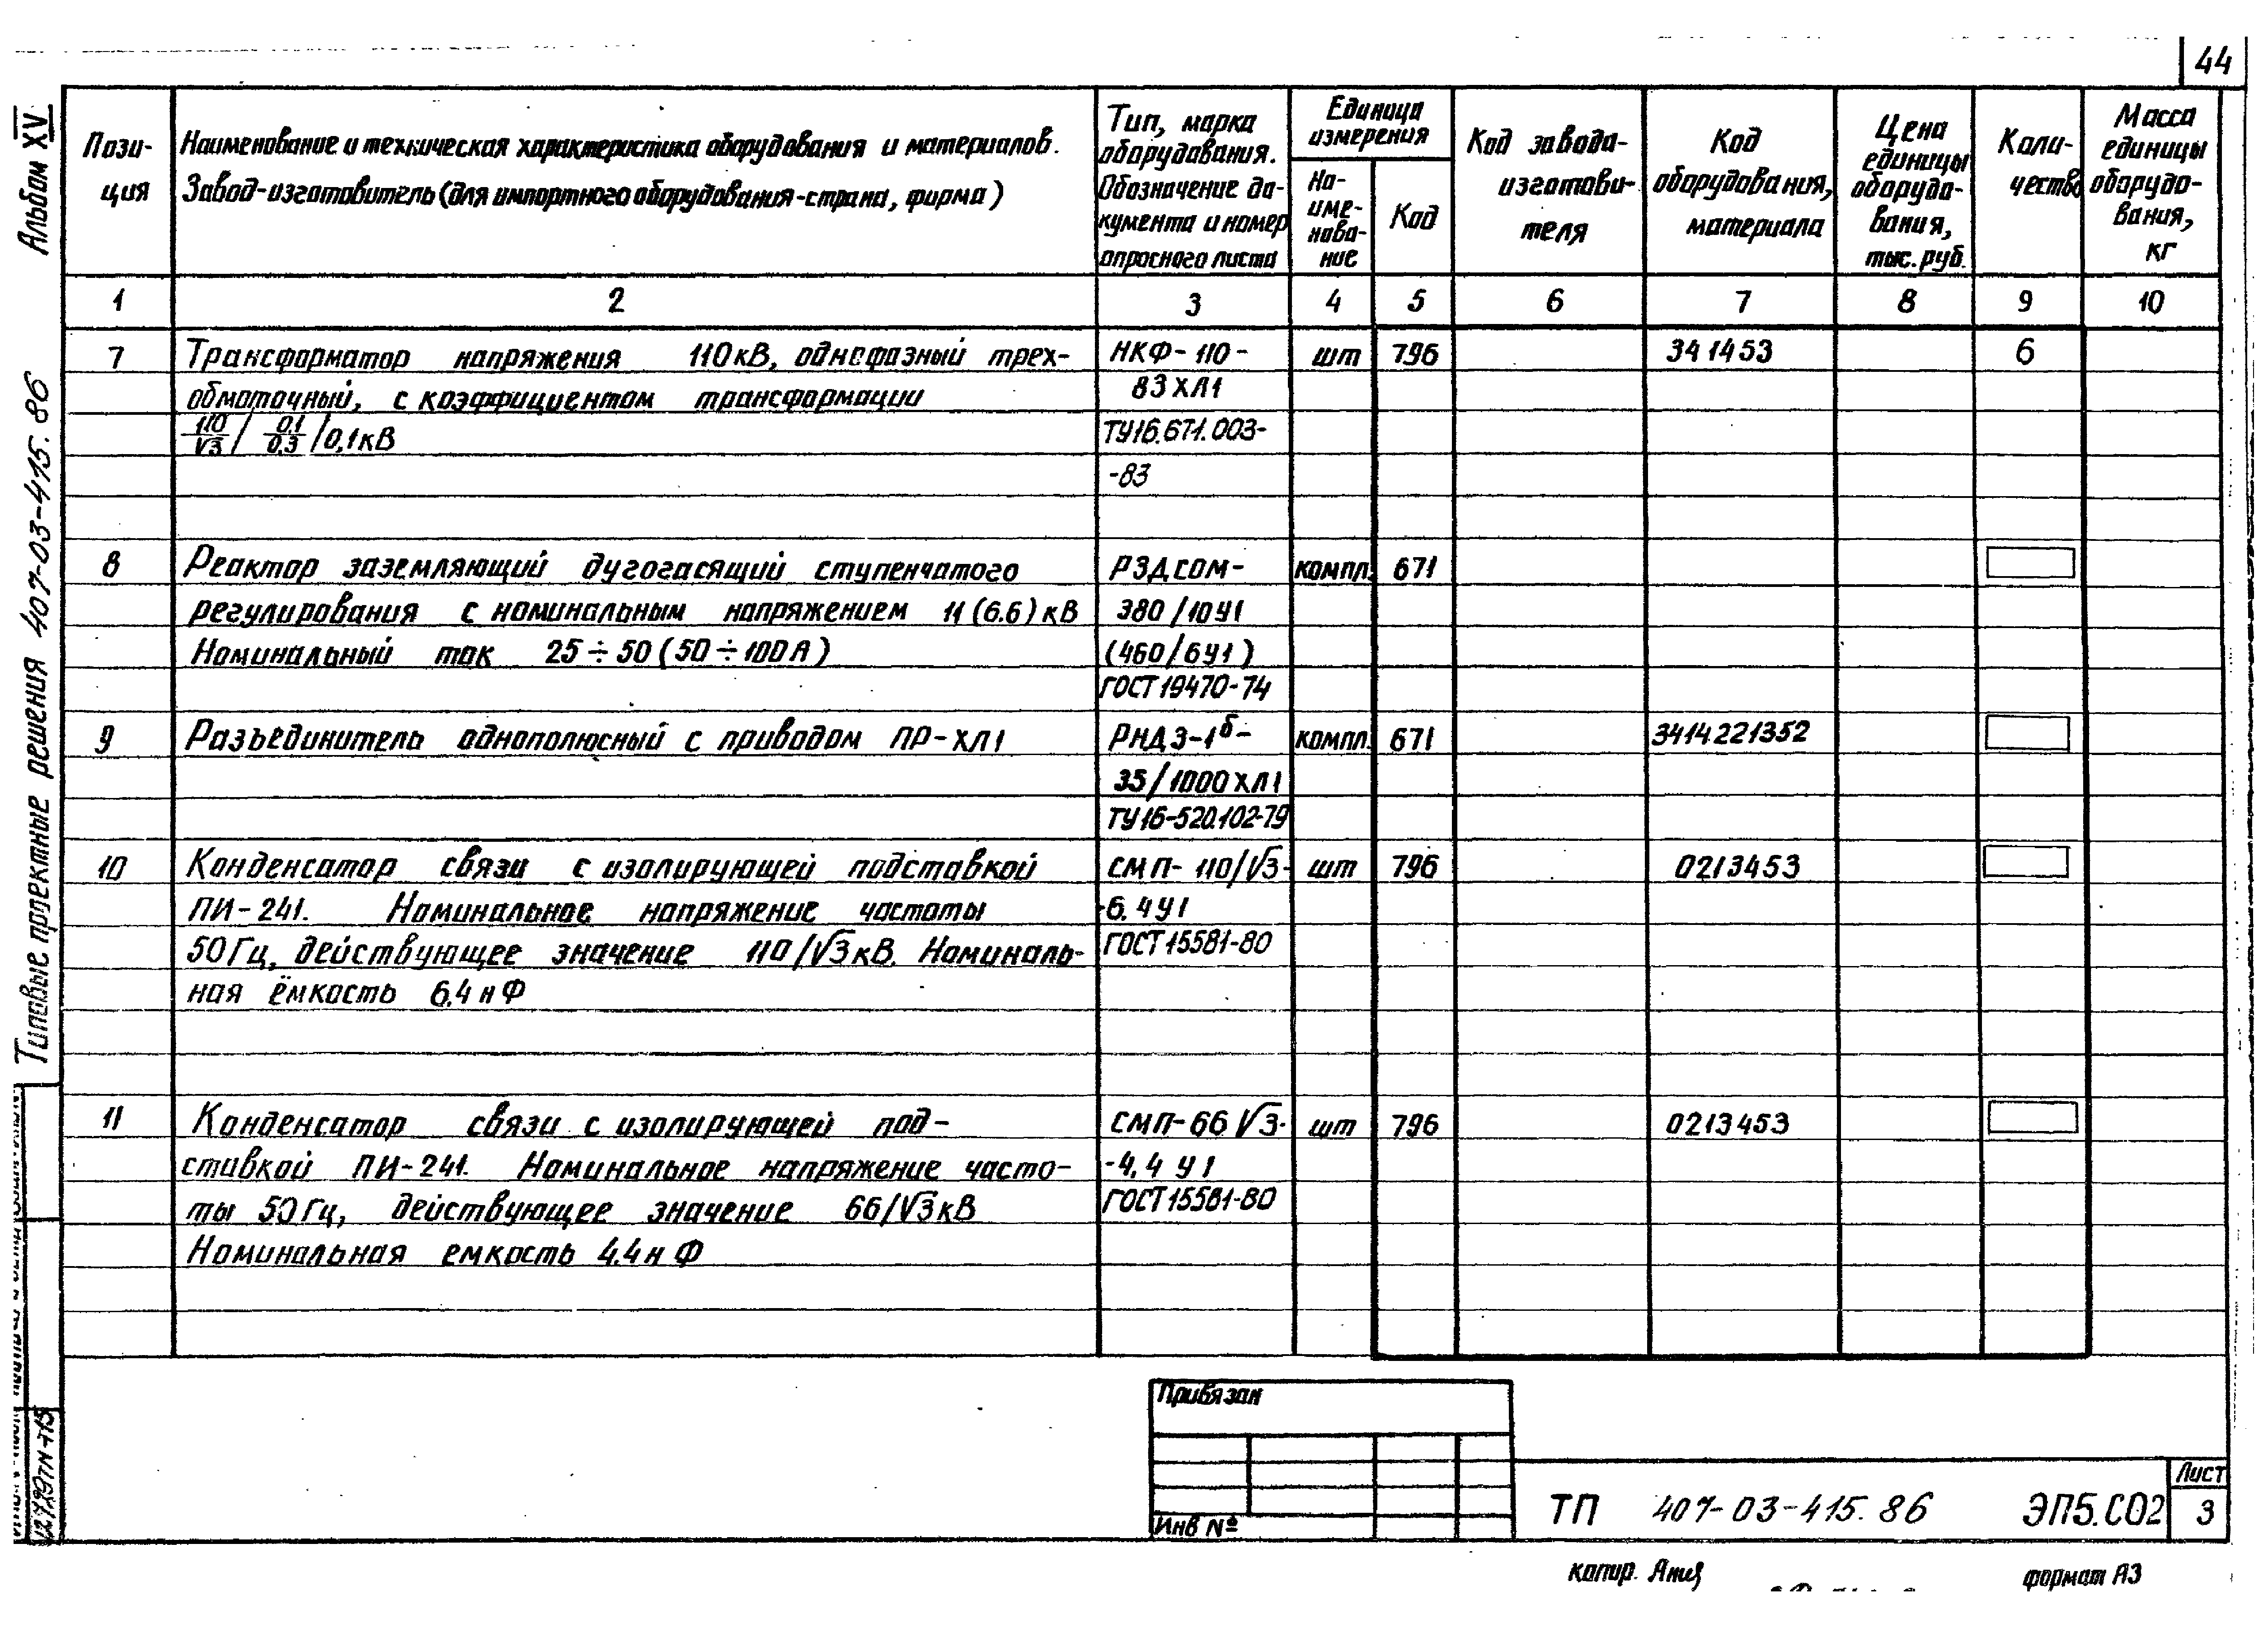 44
Альбом XV
Типовые проектные решения 407-03-415.86
Пози-
ция
Наименование и техническая характеристика оборудования и материалов.
Завод-изготовитель (для импортного оборудования-страна, фирма)
Тип, марка
оборудования.
Обозначение до-
кумента и номер
опросного листа
Единица
измерения
На-
име-
нова-
ние
Код
Код завода-
изготови-
теля
Код
оборудования,
материала
Цена
единицы
оборудо-
вания,
тыс. руб.
Коли-
чество
Масса
единицы
оборудо-
вания,
кг
1 2 3 4 5 6 7 8 9 10
7 Трансформатор напряжения 110кВ, однофазный трех- НКФ-110- шт 796 341453 6
обмоточный, с коэффициентом трансформации 83ХЛ1
110/√3 / 0.1/0.3 /0,1кВ ТУ16.671.003-
-83
8 Реактор заземляющий дугогасящий ступенчатого РЗДСОМ- компл. 671
регулирования с номинальным напряжением 11(6.6)кВ 380/10У1
Номинальный ток 25÷50(50÷100А) (460/6У1)
ГОСТ 19470-74
9 Разъединитель однополюсный с приводом ПР-ХЛ1 РНДЗ-1б- компл. 671 3414221352
35/1000ХЛ1
ТУ16-520.102-79
10 Конденсатор связи с изолирующей подставкой СМП-110/√3- шт 796 0213453
ПИ-241. Номинальное напряжение частоты -6.4У1
50Гц, действующее значение 110/√3кВ. Номиналь- ГОСТ15581-80
ная ёмкость 6.4нФ
11 Конденсатор связи с изолирующей под- СМП-66√3- шт 796 0213453
ставкой ПИ-241. Номинальное напряжение часто- -4.4У1
ты 50Гц, действующее значение 66/√3кВ ГОСТ15581-80
Номинальная емкость 4.4нФ
Привязан
Инв №
ТП 407-03-415.86 ЭП5.СО2
Лист
3
12729тм-т15
копир. формат А3